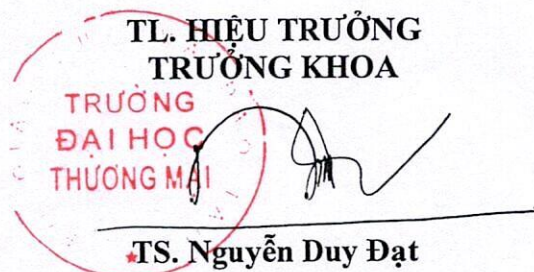 TL. HIỆU TRƯỞNG
TRƯỞNG KHOA
TRƯỜNG
ĐẠI HỌC
THƯƠNG MẠI
TS. Nguyễn Duy Đạt